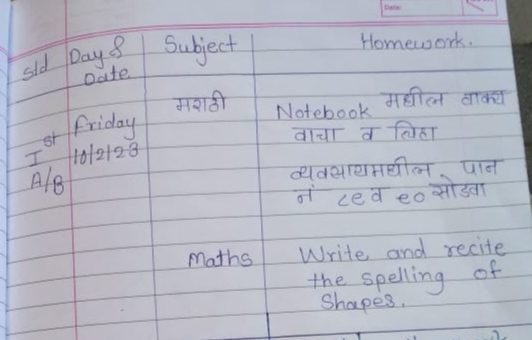 Date:
std Day & Date Subject Homework.
Ist A/B Friday 10/2/23 मराठी Notebook मधील वाक्य
वाचा व लिहा
व्यवसायमधील पान
नं ८९ व ९० सोडवा
Maths Write and recite
the spelling of
Shapes.